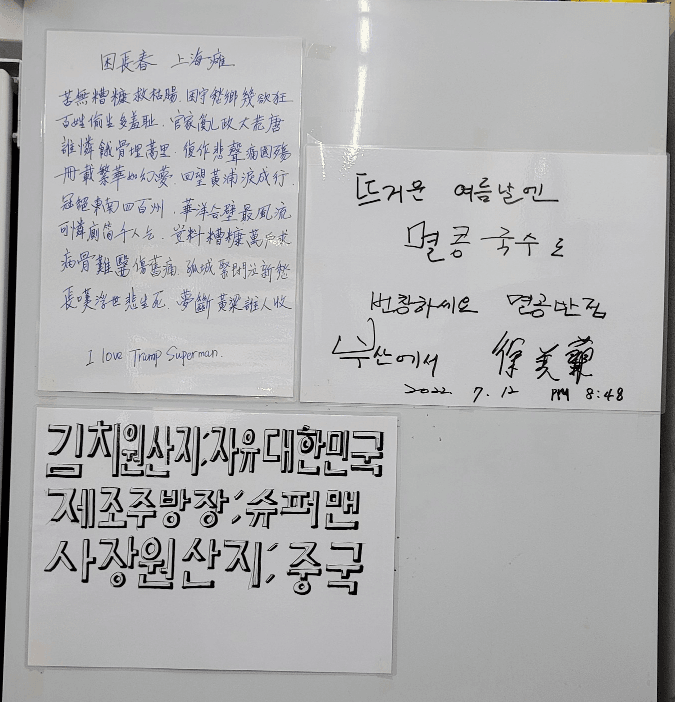 困長春 上海癱
苦無糟糠救枯腸.困守愁鄉幾欲狂
百姓偷生多羞恥.官家亂政大荒唐
誰憐餓骨埋蒿里.復作悲聲病國殤
冊載繁華如幻夢.回望黃浦淚成行
冠絕東南四百洲.華洋合璧最風流
可憐 千人 .豈料糟糠萬戶求
病骨難醫傷舊痛.孤城緊閉泣新愁
長嘆浮世悲生死.夢斷黃粱誰人收
I love Trump Superman.
뜨거운 여름날엔
멸콩 국수로
번창하세요 멸공반점
부산에서 徐美蘭
2022. 7. 12 PM 8:48
김치원산지;자유대한민국
제조주방장;슈퍼맨
사장원산지;중국